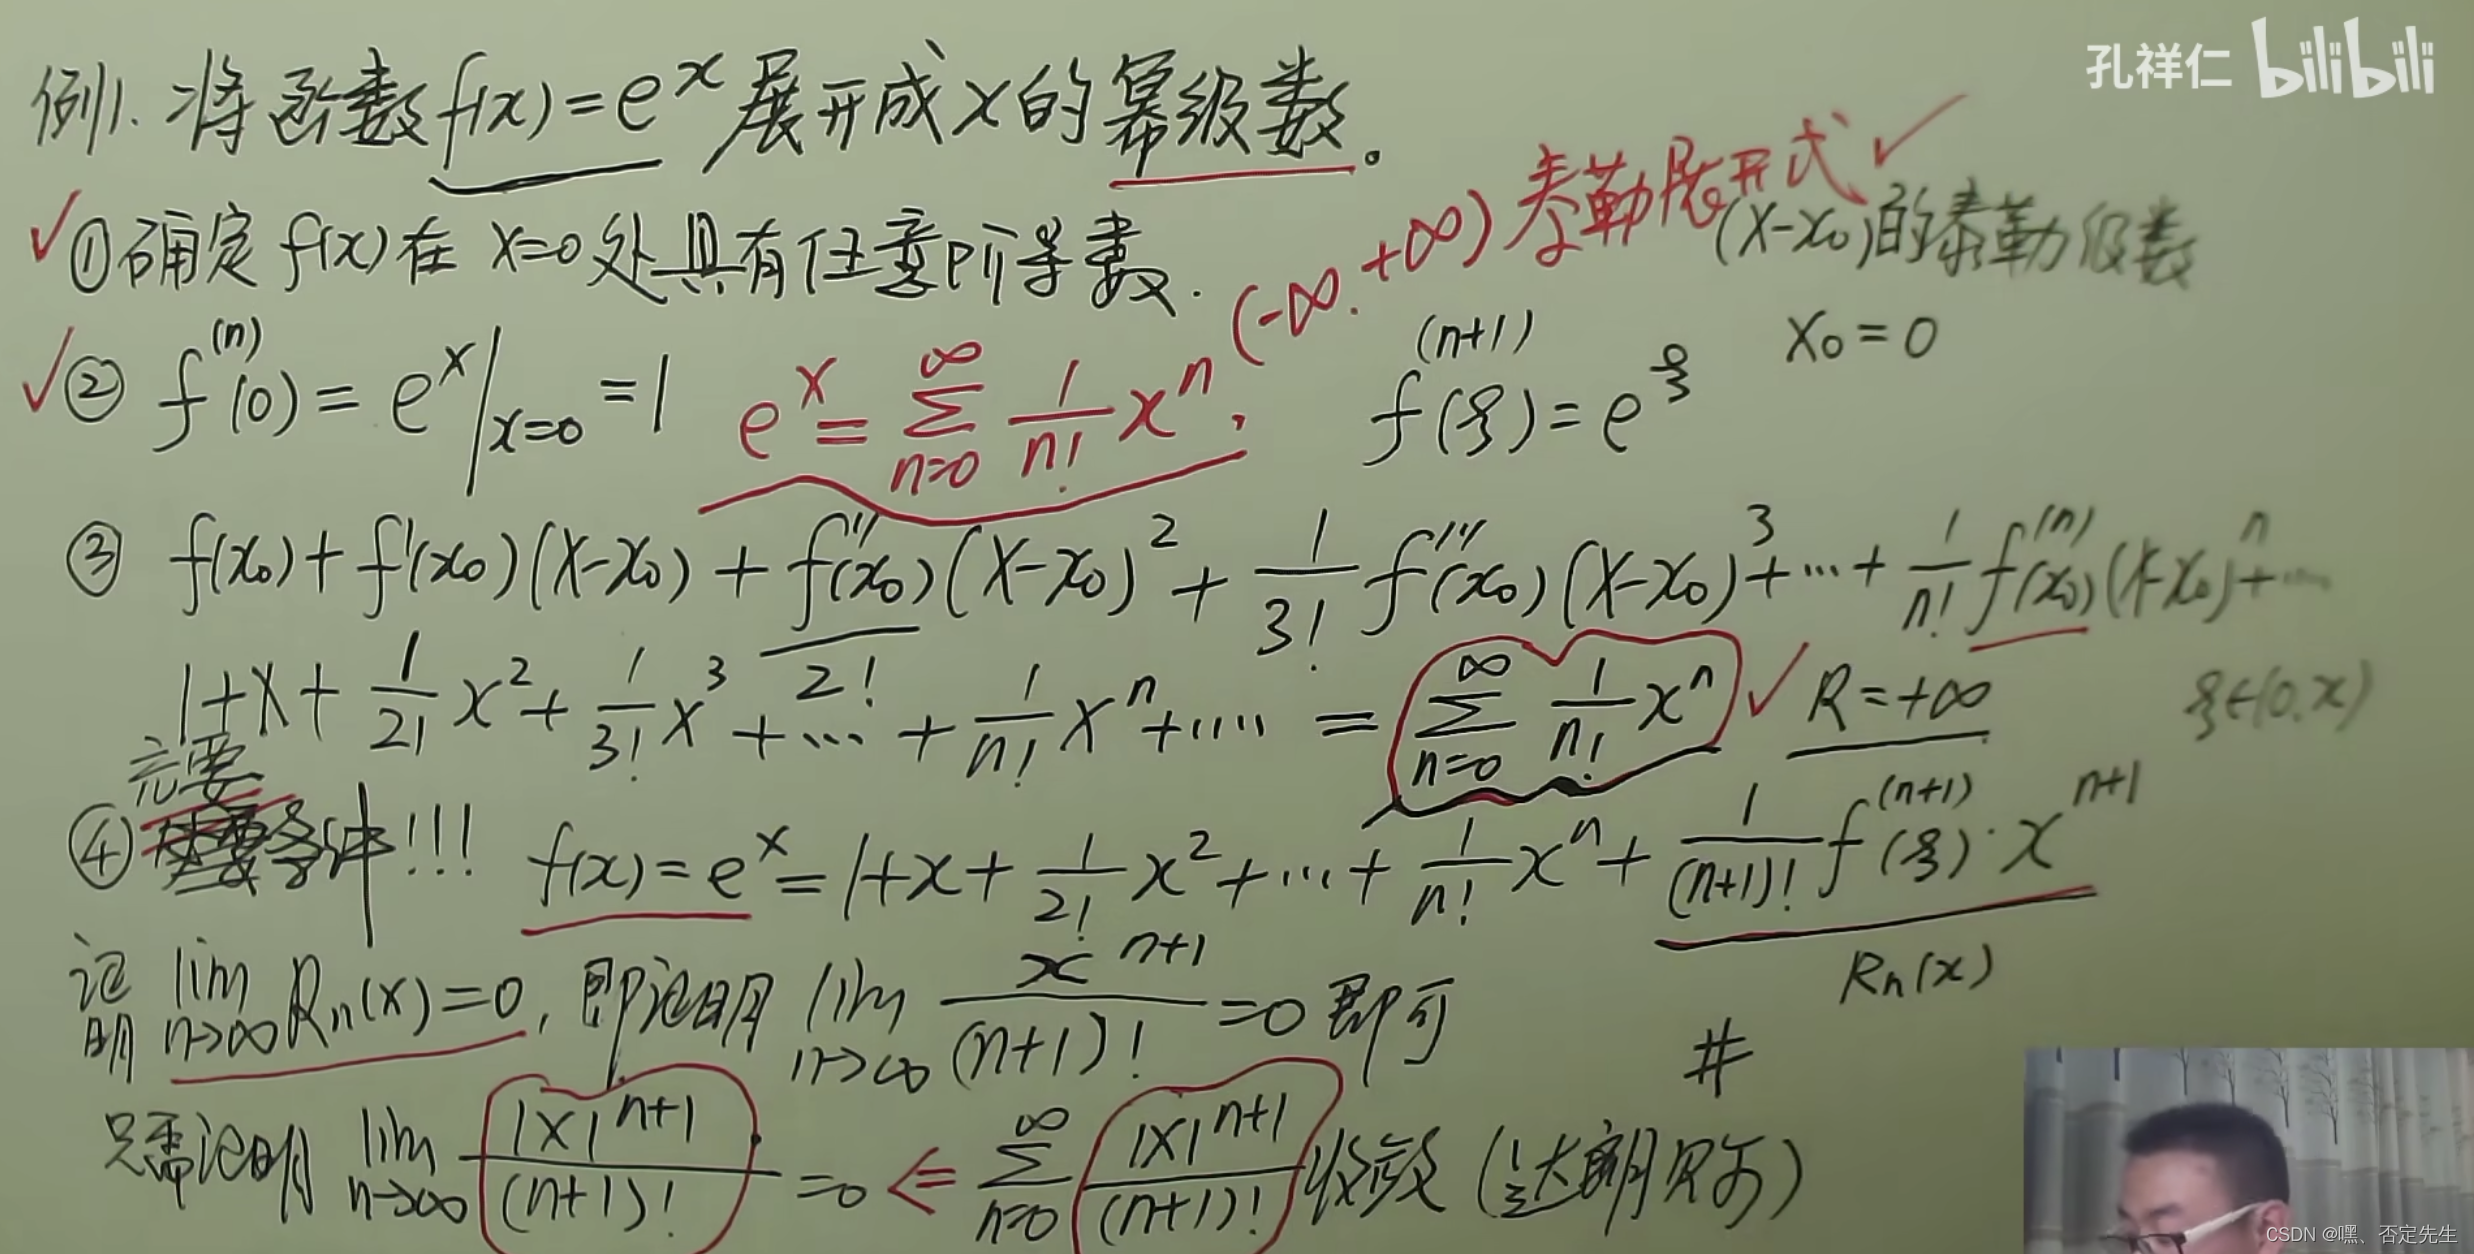 孔祥仁 bilibili
例1. 将函数f(x)=e^x展开成x的幂级数。
泰勒展开式✓
✓①确定f(x)在x=0处具有任意阶导数.
(-∞,+∞)
(x-x₀)的泰勒级数
✓② f^(n)(0)=e^x|_{x=0}=1
e^x=∑_{n=0}^{∞} 1/n! x^n,
f^(n+1)(ξ)=e^ξ
x₀=0
③ f(x₀)+f'(x₀)(x-x₀)+f''(x₀)/2!(x-x₀)²+1/3! f'''(x₀)(x-x₀)³+…+1/n! f^(n)(x₀)(x-x₀)^n+…
1+x+1/2! x²+1/3! x³+…+1/n! x^n+…=∑_{n=0}^{∞} 1/n! x^n ✓ R=+∞
ξ∈(0,x)
④ 充要条件!!! f(x)=e^x=1+x+1/2! x²+…+1/n! x^n+1/(n+1)! f^(n+1)(ξ)·x^{n+1}
R_n(x)
证明 lim_{n→∞} R_n(x)=0, 即证明 lim_{n→∞} x^{n+1}/(n+1)! =0 即可
#
只需证明 lim_{n→∞} |x|^{n+1}/(n+1)! =0 ⇐ ∑_{n=0}^{∞} |x|^{n+1}/(n+1)! 收敛 (达朗贝尔)
CSDN @嘿、否定先生